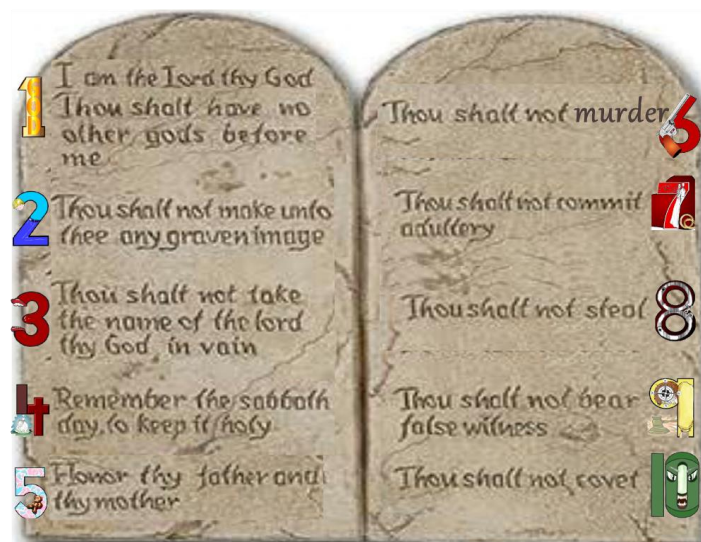 1
I am the Lord thy God
Thou shalt have no
other gods before
me
2
Thou shalt not make unto
thee any graven image
3
Thou shalt not take
the name of the lord
thy God, in vain
4
Remember the sabbath
day, to keep it holy
5
Honor thy father and
thy mother
Thou shalt not murder
6
Thou shalt not commit
adultery
7
Thou shalt not steal
8
Thou shalt not bear
false witness
9
Thou shalt not covet
10